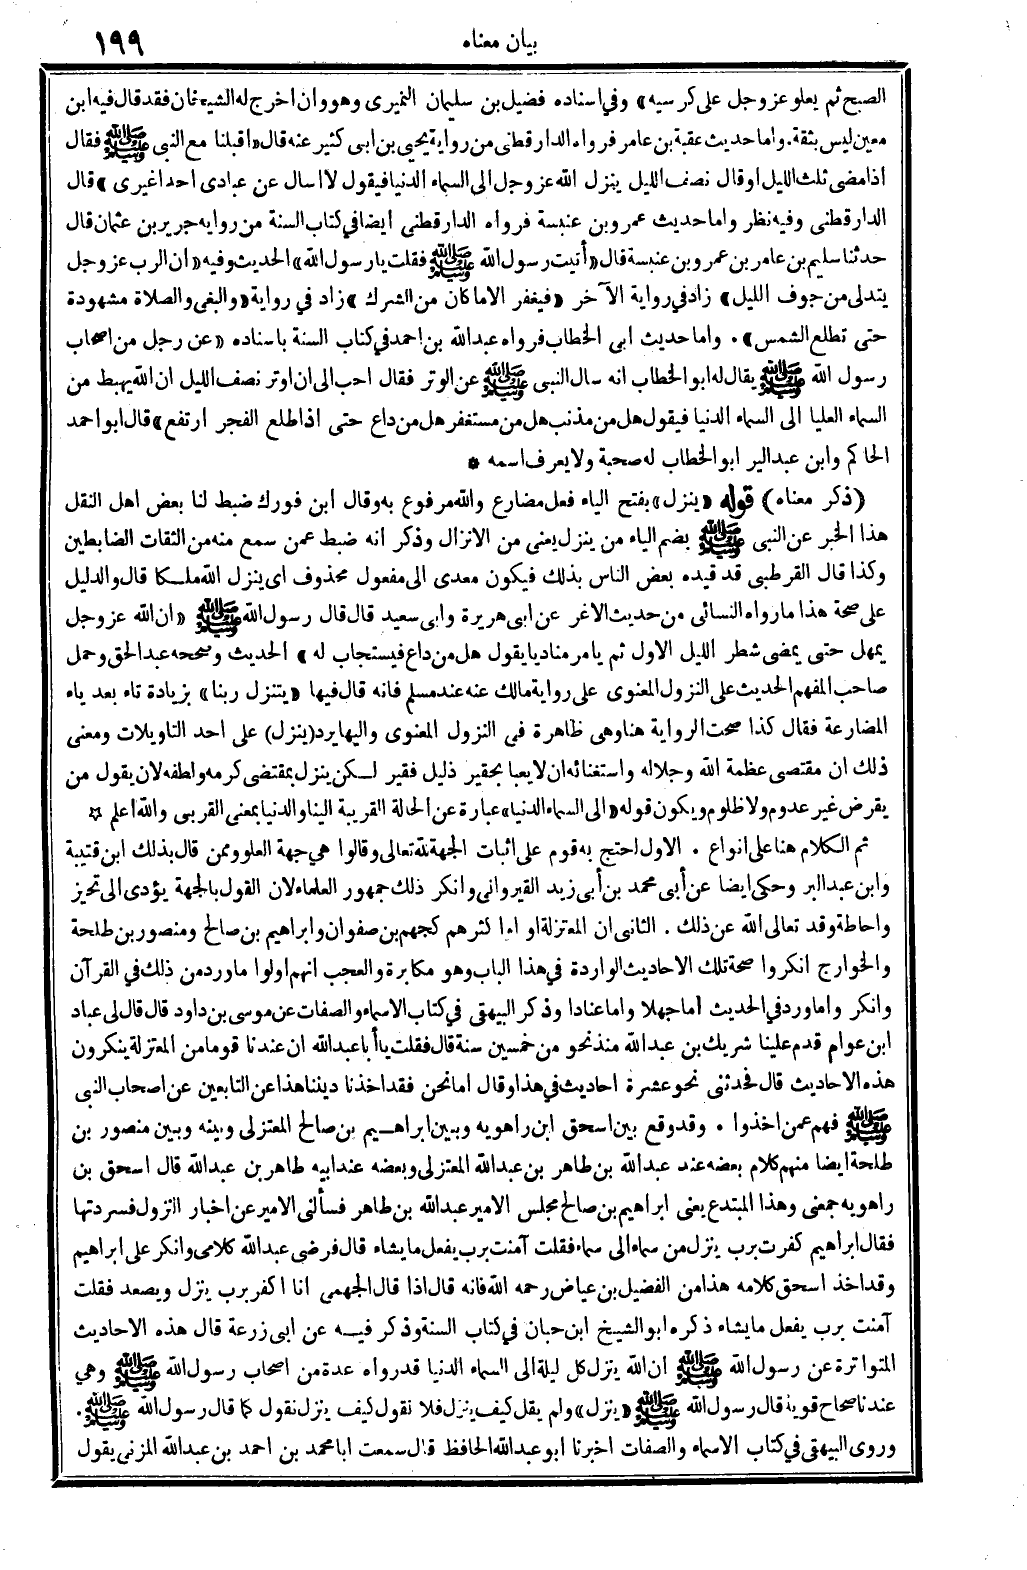 بيان معناه ١٩٩
الصبح ثم يعلو عز وجل على كرسيه» وفي اسناده فضيل بن سليمان النميرى وهو وان اخرج له الشيخان فقد قال فيه ابن
معين ليس بثقة. واما حديث عقبة بن عامر فرواه الدارقطنى من رواية يحيى بن ابى كثير عنه قال «اقبلنا مع النبى ﷺ فقال
اذا مضى ثلث الليل او قال نصف الليل ينزل الله عز وجل الى السماء الدنيا فيقول لا اسال عن عبادى احدا غيرى» قال
الدارقطنى وفيه نظر واما حديث عمرو بن عنبسة فرواه الدارقطنى ايضا في كتاب السنة من روايه جرير بن عثمان قال
حدثنا سليم بن عامر بن عمرو بن عنبسة قال «أتيت رسول الله ﷺ فقلت يا رسول الله» الحديث وفيه «ان الرب عز وجل
يتدلى من جوف الليل» زاد في رواية الآخر «فيغفر الا ما كان من الشرك» زاد في رواية «والبغى والصلاة مشهودة
حتى تطلع الشمس». واما حديث ابى الخطاب فرواه عبدالله بن احمد في كتاب السنة باسناده «عن رجل من اصحاب
رسول الله ﷺ يقال له ابو الخطاب انه سال النبى ﷺ عن الوتر فقال احب الى ان اوتر نصف الليل ان الله يهبط من
السماء العليا الى السماء الدنيا فيقول هل من مذنب هل من مستغفر هل من داع حتى اذا طلع الفجر ارتفع» قال ابو احمد
الحاكم وابن عبدالبر ابو الخطاب له صحبة ولا يعرف اسمه *
(ذكر معناه) قوله «ينزل» بفتح الياء فعل مضارع والله مرفوع به وقال ابن فورك ضبط لنا بعض اهل النقل
هذا الخبر عن النبى ﷺ بضم الياء من ينزل يعنى من الانزال وذكر انه ضبط عمن سمع منه من الثقات الضابطين
وكذا قال القرطبى قد قيده بعض الناس بذلك فيكون معدى الى مفعول محذوف اى ينزل الله ملكا قال والدليل
على صحة هذا ما رواه النسائى من حديث الاغر عن ابى هريرة وابى سعيد قال قال رسول الله ﷺ «ان الله عز وجل
يمهل حتى يمضى شطر الليل الاول ثم يامر مناديا يقول هل من داع فيستجاب له» الحديث وصححه عبدالحق وحمل
صاحب المفهم الحديث على النزول المعنوى على رواية مالك عنه عند مسلم فانه قال فيها «يتنزل ربنا» بزيادة تاء بعد ياء
المضارعة فقال كذا صحت الرواية هنا وهى ظاهرة فى النزول المعنوى واليها يرد (ينزل) على احد التاويلات ومعنى
ذلك ان مقتضى عظمة الله وجلاله واستغنائه ان لا يعبا بحقير ذليل فقير لكن ينزل بمقتضى كرمه ولطفه لان يقول من
يقرض غير عدوم ولا ظلوم ويكون قوله «الى السماء الدنيا» عبارة عن الحالة القريبة الينا والدنيا بمعنى القربى والله اعلم *
ثم الكلام هنا على انواع . الاول احتج به قوم على اثبات الجهة لله تعالى وقالوا هي جهة العلو وممن قال بذلك ابن قتيبة
وابن عبدالبر وحكى ايضا عن أبى محمد بن أبى زيد القيروانى وانكر ذلك جمهور العلماء لان القول بالجهة يؤدى الى تحيز
واحاطة وقد تعالى الله عن ذلك . الثانى ان المعتزلة او اكثرهم كجهم بن صفوان وابراهيم بن صالح ومنصور بن طلحة
والخوارج انكروا صحة تلك الاحاديث الواردة في هذا الباب وهو مكابرة والعجب انهم اولوا ما ورد من ذلك في القرآن
وانكروا ما ورد في الحديث اما جهلا واما عنادا وذكر البيهقى في كتاب الاسماء والصفات عن موسى بن داود قال قال لى عباد
ابن عوام قدم علينا شريك بن عبدالله منذ نحو من خمسين سنة قال فقلت يا أبا عبدالله ان عندنا قوما من المعتزلة ينكرون
هذه الاحاديث قال فحدثنى نحو عشرة احاديث في هذا وقال اما نحن فقد اخذنا ديننا هذا عن التابعين عن اصحاب النبى
ﷺ فهم عمن اخذوا . وقد وقع بين اسحق ابن راهويه وبين ابراهيم بن صالح المعتزلى وبينه وبين منصور بن
طلحة ايضا منهم كلام بعضه عند عبدالله بن طاهر بن عبدالله المعتزلى وبعضه عند ابيه طاهر بن عبدالله قال اسحق بن
راهويه جمعنى وهذا المبتدع يعنى ابراهيم بن صالح مجلس الامير عبدالله بن طاهر فسألنى الامير عن اخبار النزول فسردتها
فقال ابراهيم كفرت برب ينزل من سماء الى سماء فقلت آمنت برب يفعل ما يشاء قال فرضى عبدالله كلامى وانكر على ابراهيم
وقد اخذ اسحق كلامه هذا من الفضيل بن عياض رحمه الله فانه قال اذا قال الجهمى انا اكفر برب ينزل ويصعد فقلت
آمنت برب يفعل ما يشاء ذكره ابو الشيخ ابن حبان في كتاب السنة وذكر فيه عن ابى زرعة قال هذه الاحاديث
المتواترة عن رسول الله ﷺ ان الله ينزل كل ليلة الى السماء الدنيا قد رواه عدة من اصحاب رسول الله ﷺ وهي
عندنا صحاح قوية قال رسول الله ﷺ «ينزل» ولم يقل كيف ينزل فلا نقول كيف ينزل نقول كما قال رسول الله ﷺ .
وروى البيهقى في كتاب الاسماء والصفات اخبرنا ابو عبدالله الحافظ قال سمعت ابا محمد بن احمد بن عبدالله المزنى يقول